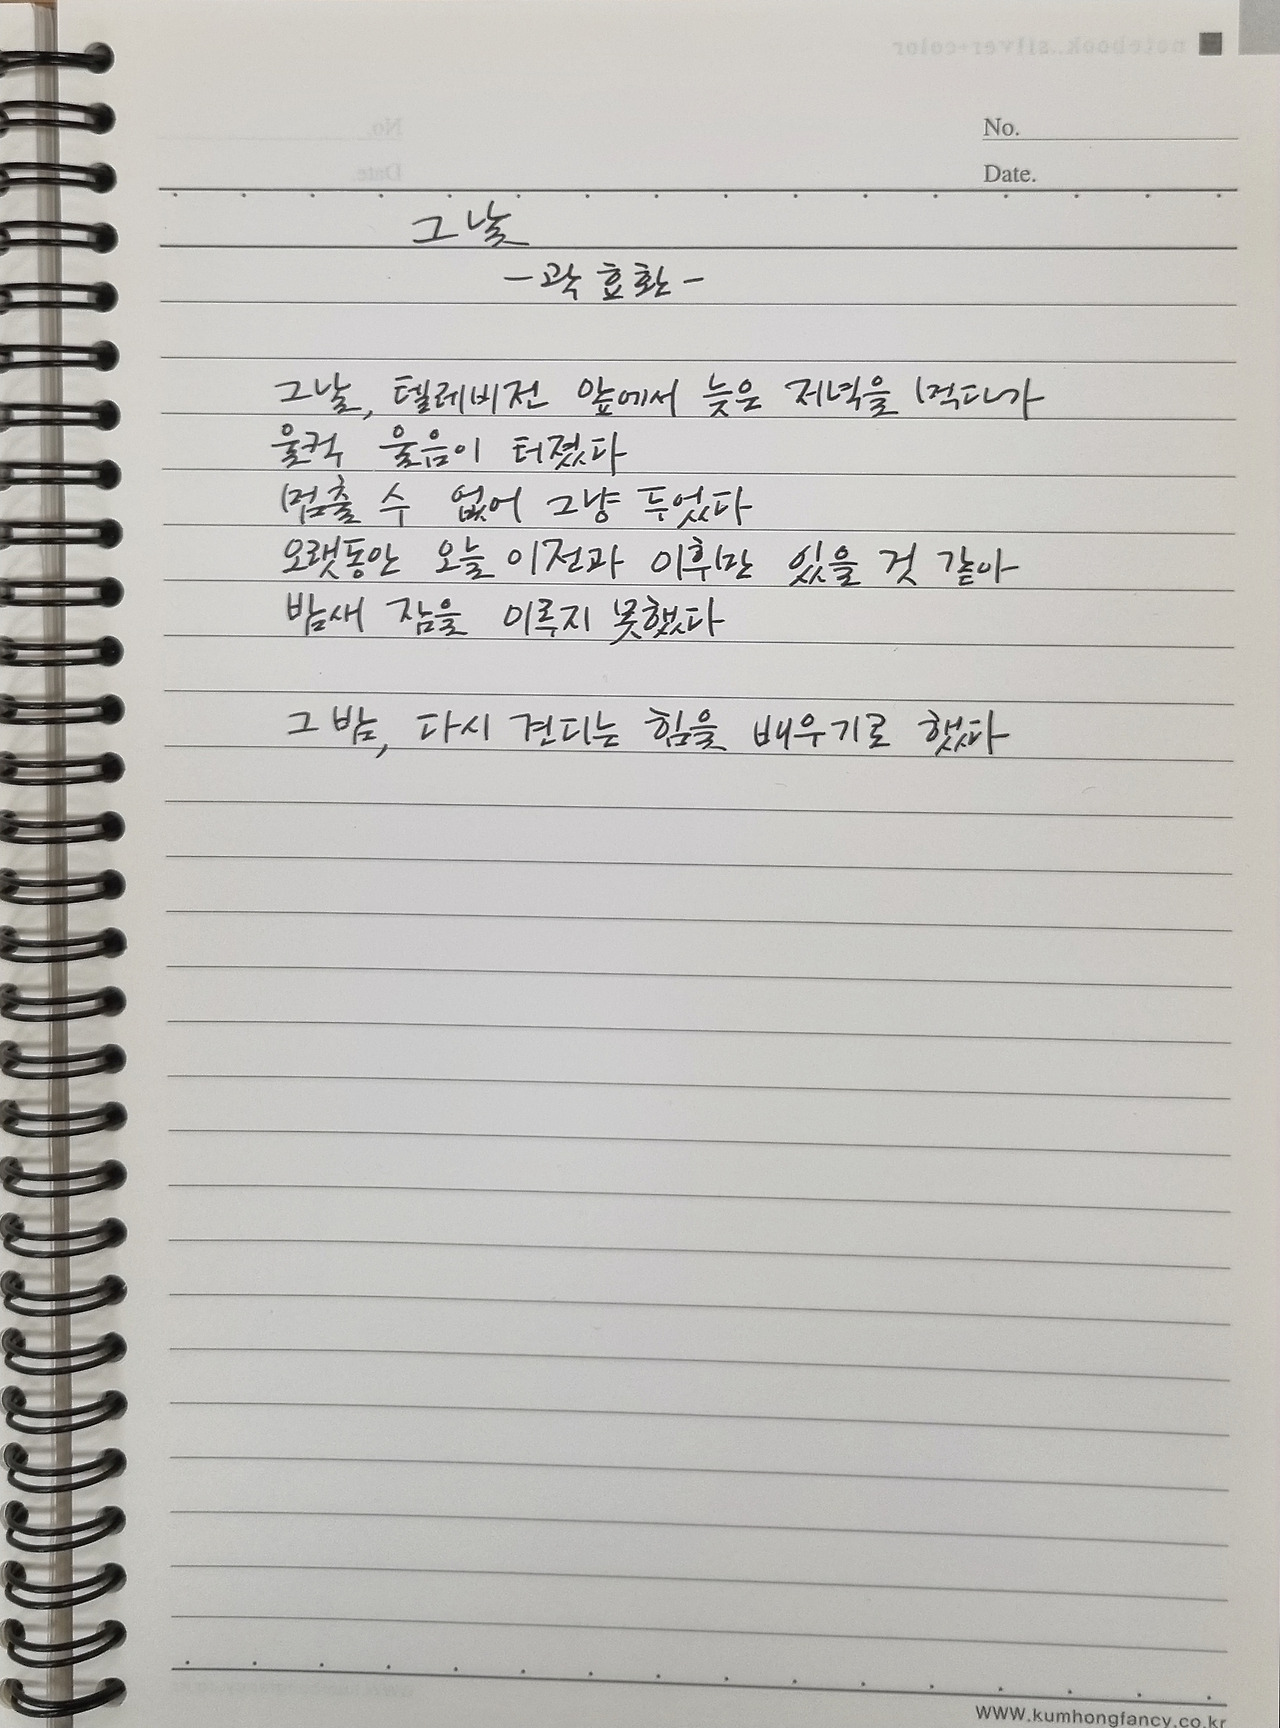 notebook..silver+color
No.
Date.
그 날
- 곽효환 -
그날, 텔레비전 앞에서 늦은 저녁을 먹다가
울컥 울음이 터졌다
멈출 수 없어 그냥 두었다
오랫동안 오늘 이전과 이후만 있을 것 같아
밤새 잠을 이루지 못했다
그 밤, 다시 견디는 힘을 배우기로 했다
www.kumhongfancy.co.kr